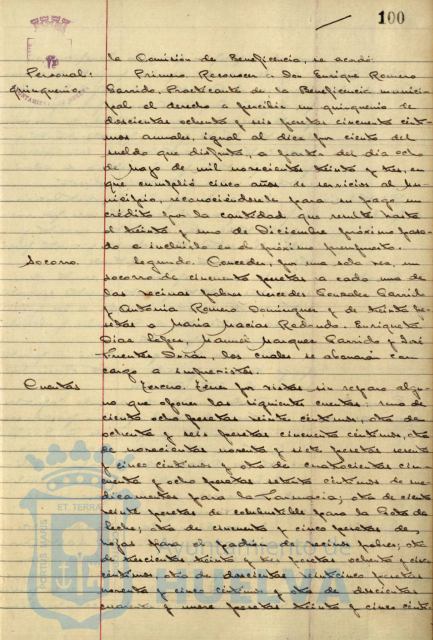 100
la Comisión de Beneficencia, se acordó:
Personal: Primero. Reconocer a Don Enrique Romero
Quinquenio. Garrido, Practicante de la Beneficencia munici-
pal el derecho a percibir un quinquenio de
doscientas ochenta y seis pesetas cincuenta cénti-
mos anuales, igual al diez por ciento del
sueldo que disfruta, a partir del día ocho
de mayo de mil novecientos treinta y tres, en
que cumplió cinco años de servicios al Mu-
nicipio, reconociéndosele para su pago un
crédito por la cantidad que resulte hasta
el treinta y uno de Diciembre próximo pasa-
do e incluirlo en el próximo presupuesto.
Socorro. Segundo. Conceder, por una sola vez, un
socorro de cincuenta pesetas a cada una de
las vecinas pobres Mercedes Gonzalez Garrido
y Antonia Romero Dominguez y de treinta pe-
setas a Maria Macias Redondo, Enriqueta
Diaz Lopez, Manuel Marquez Garrido y José
Fuentes Durán, los cuales se abonarán con
cargo a imprevistos.
Cuentas Tercero. Tener por vistas sin reparo algu-
no que oponer las siguientes cuentas: una de
ciento ocho pesetas veinte céntimos, otra de
ochenta y seis pesetas cincuenta céntimos, otra
de novecientas noventa y siete pesetas veinte
y cinco céntimos y otra de cuatrocientas cin-
cuenta y ocho pesetas setenta céntimos de me-
dicamentos para la Farmacia; otra de ciento
veinte pesetas de combustible para la Gota de
leche; otra de cincuenta y cinco pesetas de
hojas para el padrón de vecinos pobres; otra
de trescientas treinta y tres pesetas ochenta y cinco
céntimos, otra de doscientas veinticinco pesetas
noventa y cinco céntimos y otra de doscientas
cuarenta y nueve pesetas treinta y cinco cénti-
PORTUS MARIS
ET TERRAE
Ayuntamiento de
HUELVA